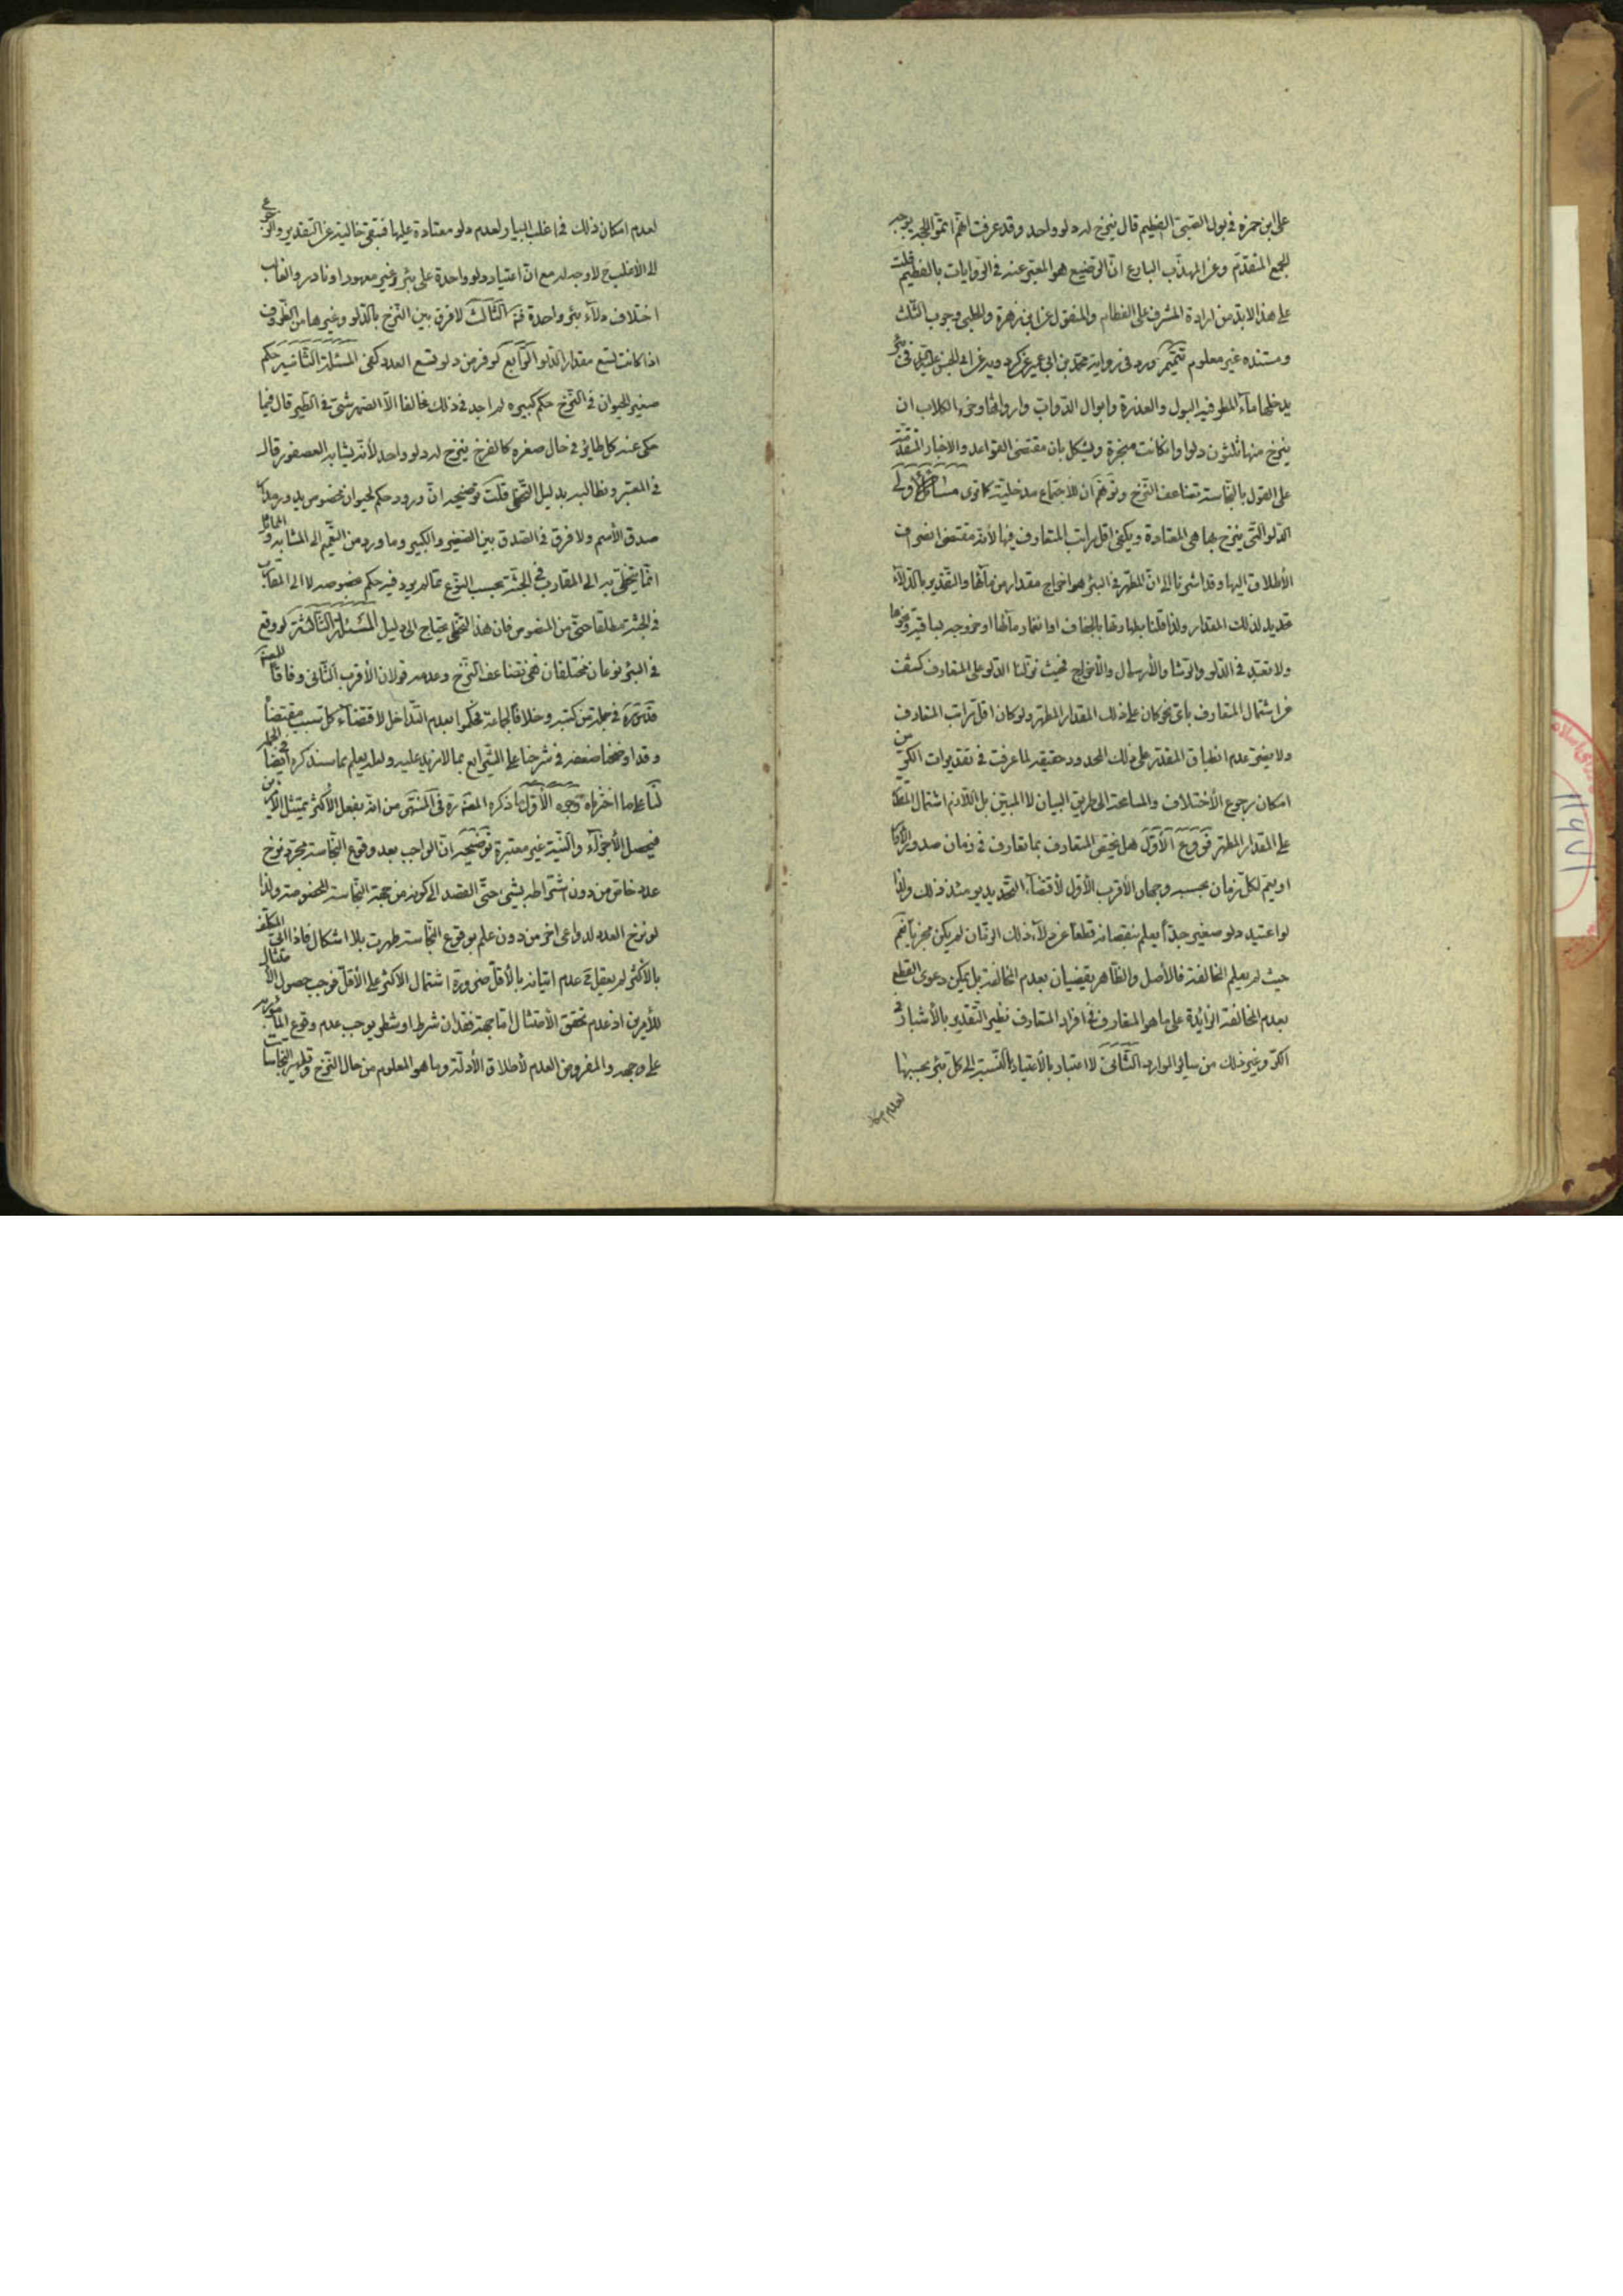 على ابن حمزة في بول الصبي الفطيم قال ينزح له دلو واحد وقد عرفت انهم
للجمع المتقدم وعن المهذب البارع ان الرضيع هو المعبر عنه في الروايات بالفطيم قلت
على هذا لابد من ارادة المشرف على الفطام والمنقول عن ابن زهرة والحلبي وجوب الثلث
ومستنده غير معلوم تتميم ورد في رواية محمد بن ابي عمير عن كردويه عن ابي الحسن عليه السلام في بئر
يدخلها مآء المطر فيه البول والعذرة وابوال الدواب وارواثها وخرء الكلاب ان
ينزح منها ثلثون دلوا وانكانت مبخرة ويشكل بان مقتضى القواعد والاخبار المتقدمة
على القول بالنجاسة تضاعف النزح وتوهم ان للاجتماع مدخلية كما ترى مسائل الاولى
الدلو التي ينزح بها هي المعتادة ويكفي اقل مراتب المتعارف فيها لأنه مقتضى انصراف
الأطلاق اليها وقد اشرنا الى ان المطهر في البئر هو اخراج مقدار من مآئها والتقدير بالدلآء
تحديد لذلك المقدار ولذا قلنا بطهارتها بالجفاف او انغمار مآئها او خروجه لباقيه
ولا تعبد في الدلو والرشا والأرسال والأخراج فحيث نزلنا الدلو على المتعارف كشف
عن اشتمال المتعارف باى نحو كان على ذلك المقدار المطهر ولو كان اقل مراتب المتعارف
ولا يضر عدم انطباق المقدر على ذلك المحدود حقيقة لما عرفت في تقديرات الكر من
امكان رجوع الأختلاف والمسامحة الى طريق البيان لا المبين بل اللازم اشتمال المقدر
على المقدار المطهر فروع الأول هل يختص المتعارف بما تعارف في زمان صدور الأحكام
او يعم لكل زمان بحسبه وجهان الأقرب الأول لأقتضاء التحديد يومئذ ذلك ولذا
لو اعتيد دلو صغير جدا يعلم بنقصانه قطعا عن دلآء ذلك الزمان لم يكن مجزيا نعم
حيث لم يعلم المخالفة فالأصل والظاهر يقضيان بعدم المخالفة بل يمكن دعوى القطع
بعدم المخالفة الزائدة على ما هو المتعارف في افراد المتعارف نظير التقدير بالأشبار في
الكر وغير ذلك من سائر الموارد الثاني لا اعتبار بالأعتياد بالنسبة الى كل بئر بحسبها
لعدم امكان
لعدم امكان ذلك في اغلب الابيار لعدم دلو معتادة عليها فتبقى خالية عن التقدير والرجوع
الى الأغلب ح لا وجه له مع ان اعتياد دلو واحدة على بئر غير معهود او نادر والغالب
اختلاف دلآء بئر واحدة الثالث لا فرق بين النزح بالدلو وغيرها من الظروف
اذا كانت تسع مقدار الدلو الرابع لو فرض دلو تسع العدد كفى المسئلة الثانية حكم
صغير الحيوان في النزح حكم كبيره لم اجد في ذلك مخالفا الا الصهرشتي في الطير قال فيما
حكى عنه كل طائر في حال صغره كالفرخ ينزح له دلو واحد لأنه يشابه العصفور قال
في المعتبر ونطالبه بدليل التخطي قلت توضيحه ان ورود حكم لحيوان مخصوص يدور مدار
صدق الأسم ولا فرق في الصدق بين الصغير والكبير وما ورد من التعميم الى المشابه والمماثل
انما يتخطى به الى المقارب في الجثة بحسب النوع مما لم يرد فيه حكم بخصوصه لا الى المقارب
في الجثة مطلقا حتى من المنصوص فان هذا التخطي يحتاج الى دليل المسئلة الثالثة لو وقع
في البئر نوعان مختلفان ففي تضاعف النزح وعدمه قولان الأقرب الثاني وفاقا للعلامة
قدس سره في جملة من كتبه وخلافا لجماعة فحكموا بعدم التداخل لاقتضآء كل سبب مقتضاه
وقد اوضحنا ضعفه في شرحنا على الشرايع بما لا مزيد عليه ولعله يعلم مما سنذكره ايضا
لنا على ما اخترناه وجوه الأول ما ذكره العلامة ره في المنتهى من انه بفعل الأكثر يمتثل الأمرين
فيحصل الأجزآء والنية غير معتبرة توضيحه ان الواجب بعد وقوع النجاسة مجرد نزح
عدد خاص من دون اشتراطه بشئ حتى القصد الى كونه من جهة النجاسة المخصوصة ولذا
لو نزح العدد لدواعى اخر من دون علم بوقوع النجاسة طهرت بلا اشكال فاذا اتى المكلف
بالأكثر لم يعقل ح عدم اتيانه بالأقل ضرورة اشتمال الاكثر على الأقل فوجب حصول الامتثال
للأمرين اذ عدم تحقق الأمتثال اما بجهة فقدان شرط او شطر يوجب عدم وقوع المأمور به
على وجهه والمفروض العدم لأطلاق الأدلة وما هو المعلوم من حال النزح وتطهير النجاسات